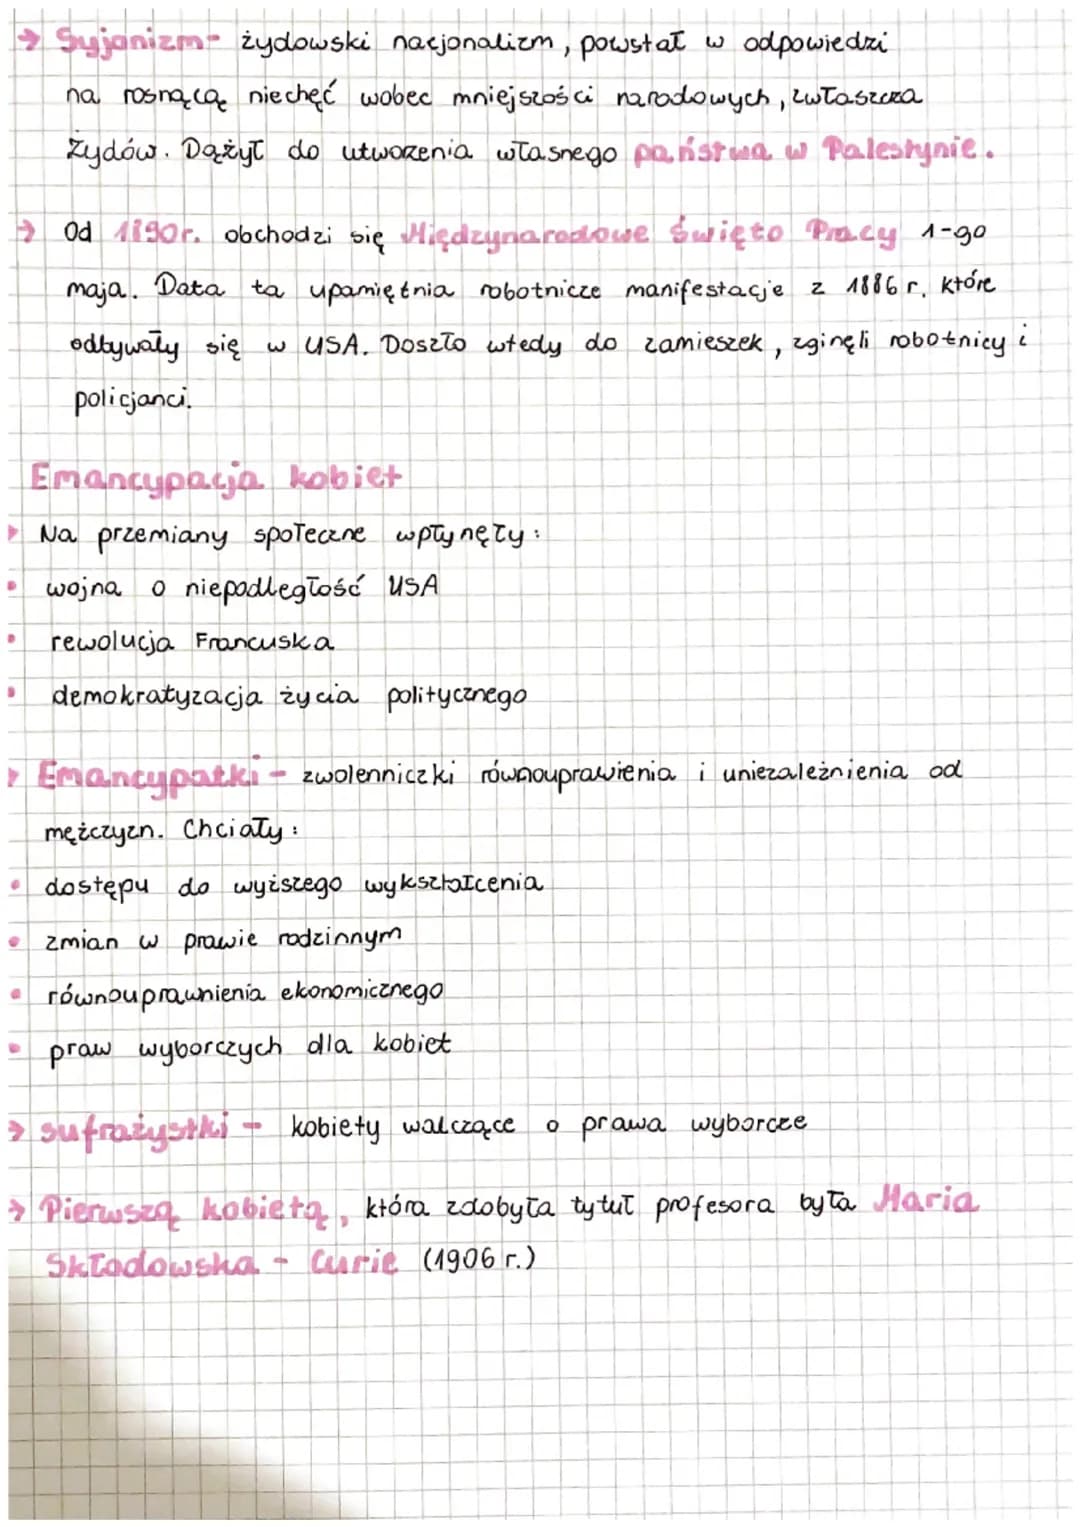 → Syjonizm- żydowski nacjonalizm, powstał w odpowiedzi
na rosnącą niechęć wobec mniejszości narodowych, zwłaszcza
Żydów. Dążył do utworzenia własnego państwa w Palestynie.
→ Od 1890r. obchodzi się Międzynarodowe Święto Pracy 1-go
maja. Data ta upamiętnia robotnicze manifestacje z 1886 r. które
odbywały się w USA. Doszło wtedy do zamieszek, zginęli robotnicy i
policjanci.
Emancypacja kobiet
Na przemiany społeczne wpłynęły:
• wojna o niepodległość USA
• rewolucja Francuska
• demokratyzacja życia politycznego
Emancypatki - zwolenniczki równouprawienia i uniezależnienia od
mężczyzn. Chciały:
• dostępu do wyższego wykształcenia
• zmian w prawie rodzinnym
• równouprawnienia ekonomicznego
• praw wyborczych dla kobiet
→ sufrażystki - kobiety walczące o prawa wyborcze
→ Pierwszą kobietą, która zdobyła tytuł profesora była Maria
Skłodowska - Curie (1906 r.)